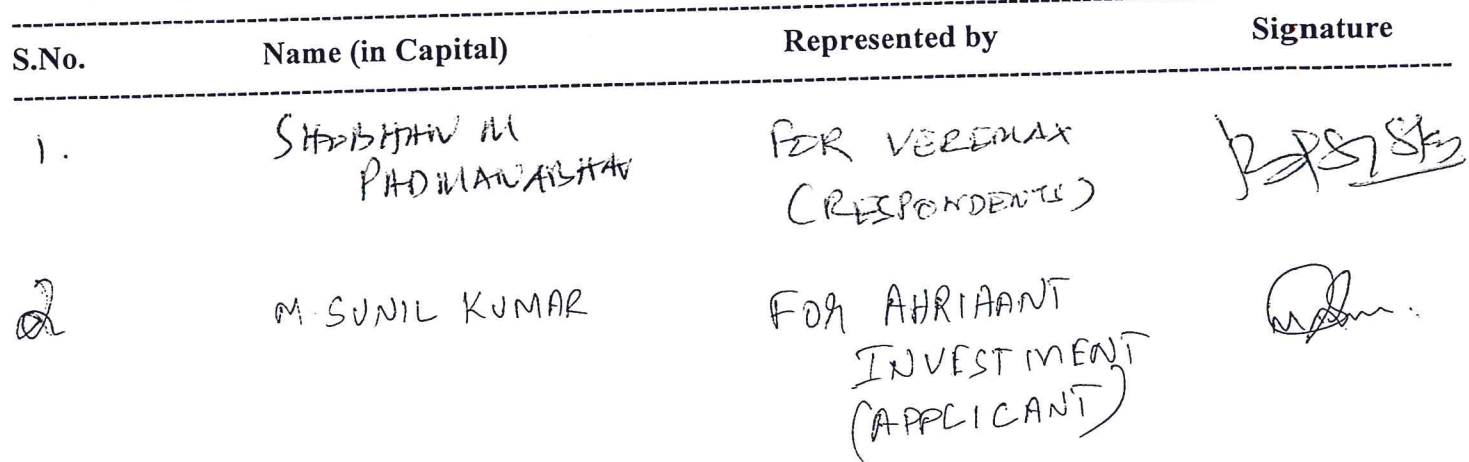 S.No. Name (in Capital) Represented by Signature
1. SHOBHAN M FOR VEREMAX
PADMANABHAN (RESPONDENTS)
2 M. SUNIL KUMAR FOR AHRIHANT
INVESTMENT
(APPLICANT)